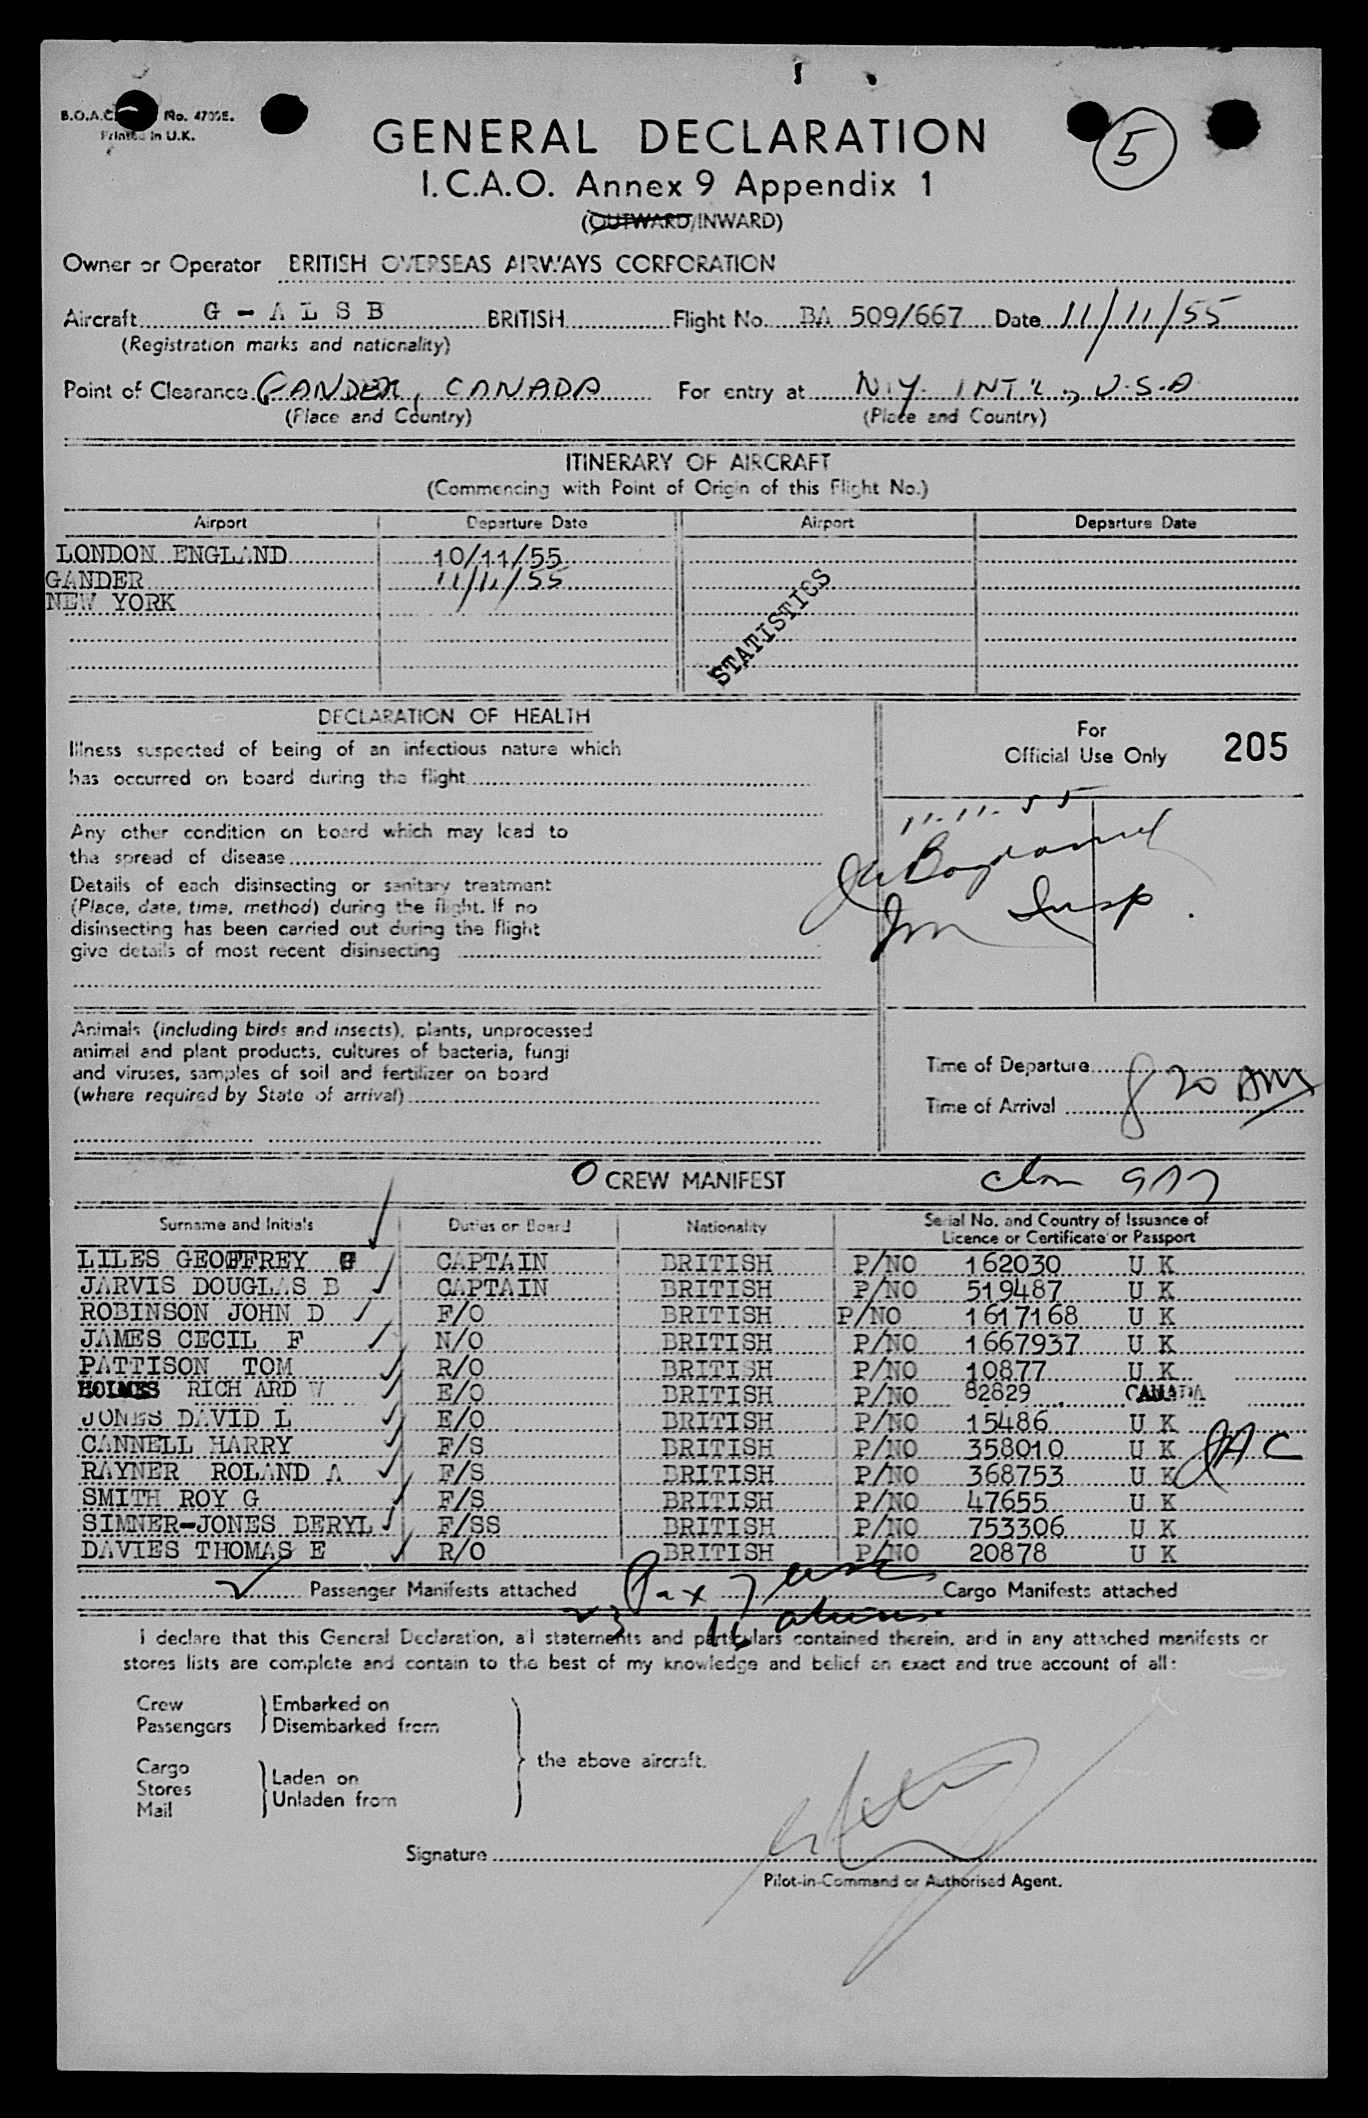 B.O.A.C. No. 4709E.
Printed in U.K.
5
GENERAL DECLARATION
I.C.A.O. Annex 9 Appendix 1
(OUTWARD/INWARD)
Owner or Operator BRITISH OVERSEAS AIRWAYS CORPORATION
Aircraft G - A L S B BRITISH Flight No. BA 509/667 Date 11/11/55
(Registration marks and nationality)
Point of Clearance GANDER, CANADA For entry at N.Y. INT'L., U.S.A.
(Place and Country) (Place and Country)
ITINERARY OF AIRCRAFT
(Commencing with Point of Origin of this Flight No.)
Airport Departure Date Airport Departure Date
LONDON ENGLAND 10/11/55
GANDER 11/11/55
NEW YORK
STATISTICS
DECLARATION OF HEALTH
Illness suspected of being of an infectious nature which
has occurred on board during the flight
Any other condition on board which may lead to
the spread of disease
Details of each disinsecting or sanitary treatment
(Place, date, time, method) during the flight. If no
disinsecting has been carried out during the flight
give details of most recent disinsecting
For
Official Use Only 205
11.11.55
Imm Insp.
Animals (including birds and insects), plants, unprocessed
animal and plant products, cultures of bacteria, fungi
and viruses, samples of soil and fertilizer on board
(where required by State of arrival)
Time of Departure
Time of Arrival 8 20 AM
O CREW MANIFEST
Surname and Initials Duties on Board Nationality Serial No. and Country of Issuance of
Licence or Certificate or Passport
LILES GEOFFREY G CAPTAIN BRITISH P/NO 162030 U K
JARVIS DOUGLAS B CAPTAIN BRITISH P/NO 519487 U K
ROBINSON JOHN D F/O BRITISH P/NO 1617168 U K
JAMES CECIL F N/O BRITISH P/NO 1667937 U K
PATTISON TOM R/O BRITISH P/NO 10877 U K
HOLMES RICHARD W E/O BRITISH P/NO 82829 CANADA
JONES DAVID L E/O BRITISH P/NO 15486 U K
CANNELL HARRY F/S BRITISH P/NO 358010 U K
RAYNER ROLAND A F/S BRITISH P/NO 368753 U K
SMITH ROY G F/S BRITISH P/NO 47655 U K
SIMNER-JONES BERYL F/SS BRITISH P/NO 753306 U K
DAVIES THOMAS E R/O BRITISH P/NO 20878 U K
Passenger Manifests attached Pax 7 Cargo Manifests attached
23 16 aliens
I declare that this General Declaration, all statements and particulars contained therein, and in any attached manifests or
stores lists are complete and contain to the best of my knowledge and belief an exact and true account of all:
Crew
Passengers
Embarked on
Disembarked from
Cargo
Stores
Mail
Laden on
Unladen from
the above aircraft.
Signature
Pilot-in-Command or Authorised Agent.